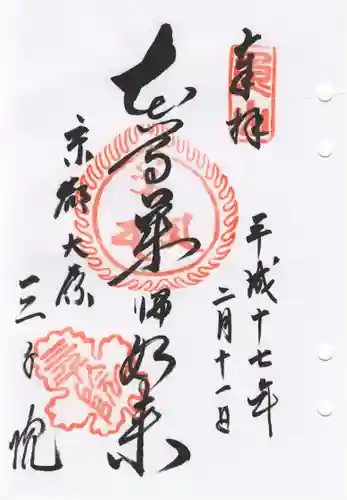 奉拝
魚山
平成十七年
二月十一日
本尊薬師如来
京都大原
三千院